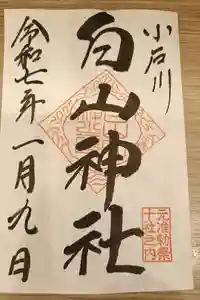 小石川
白山神社
令和七年一月九日
元准勅祭
十社之内